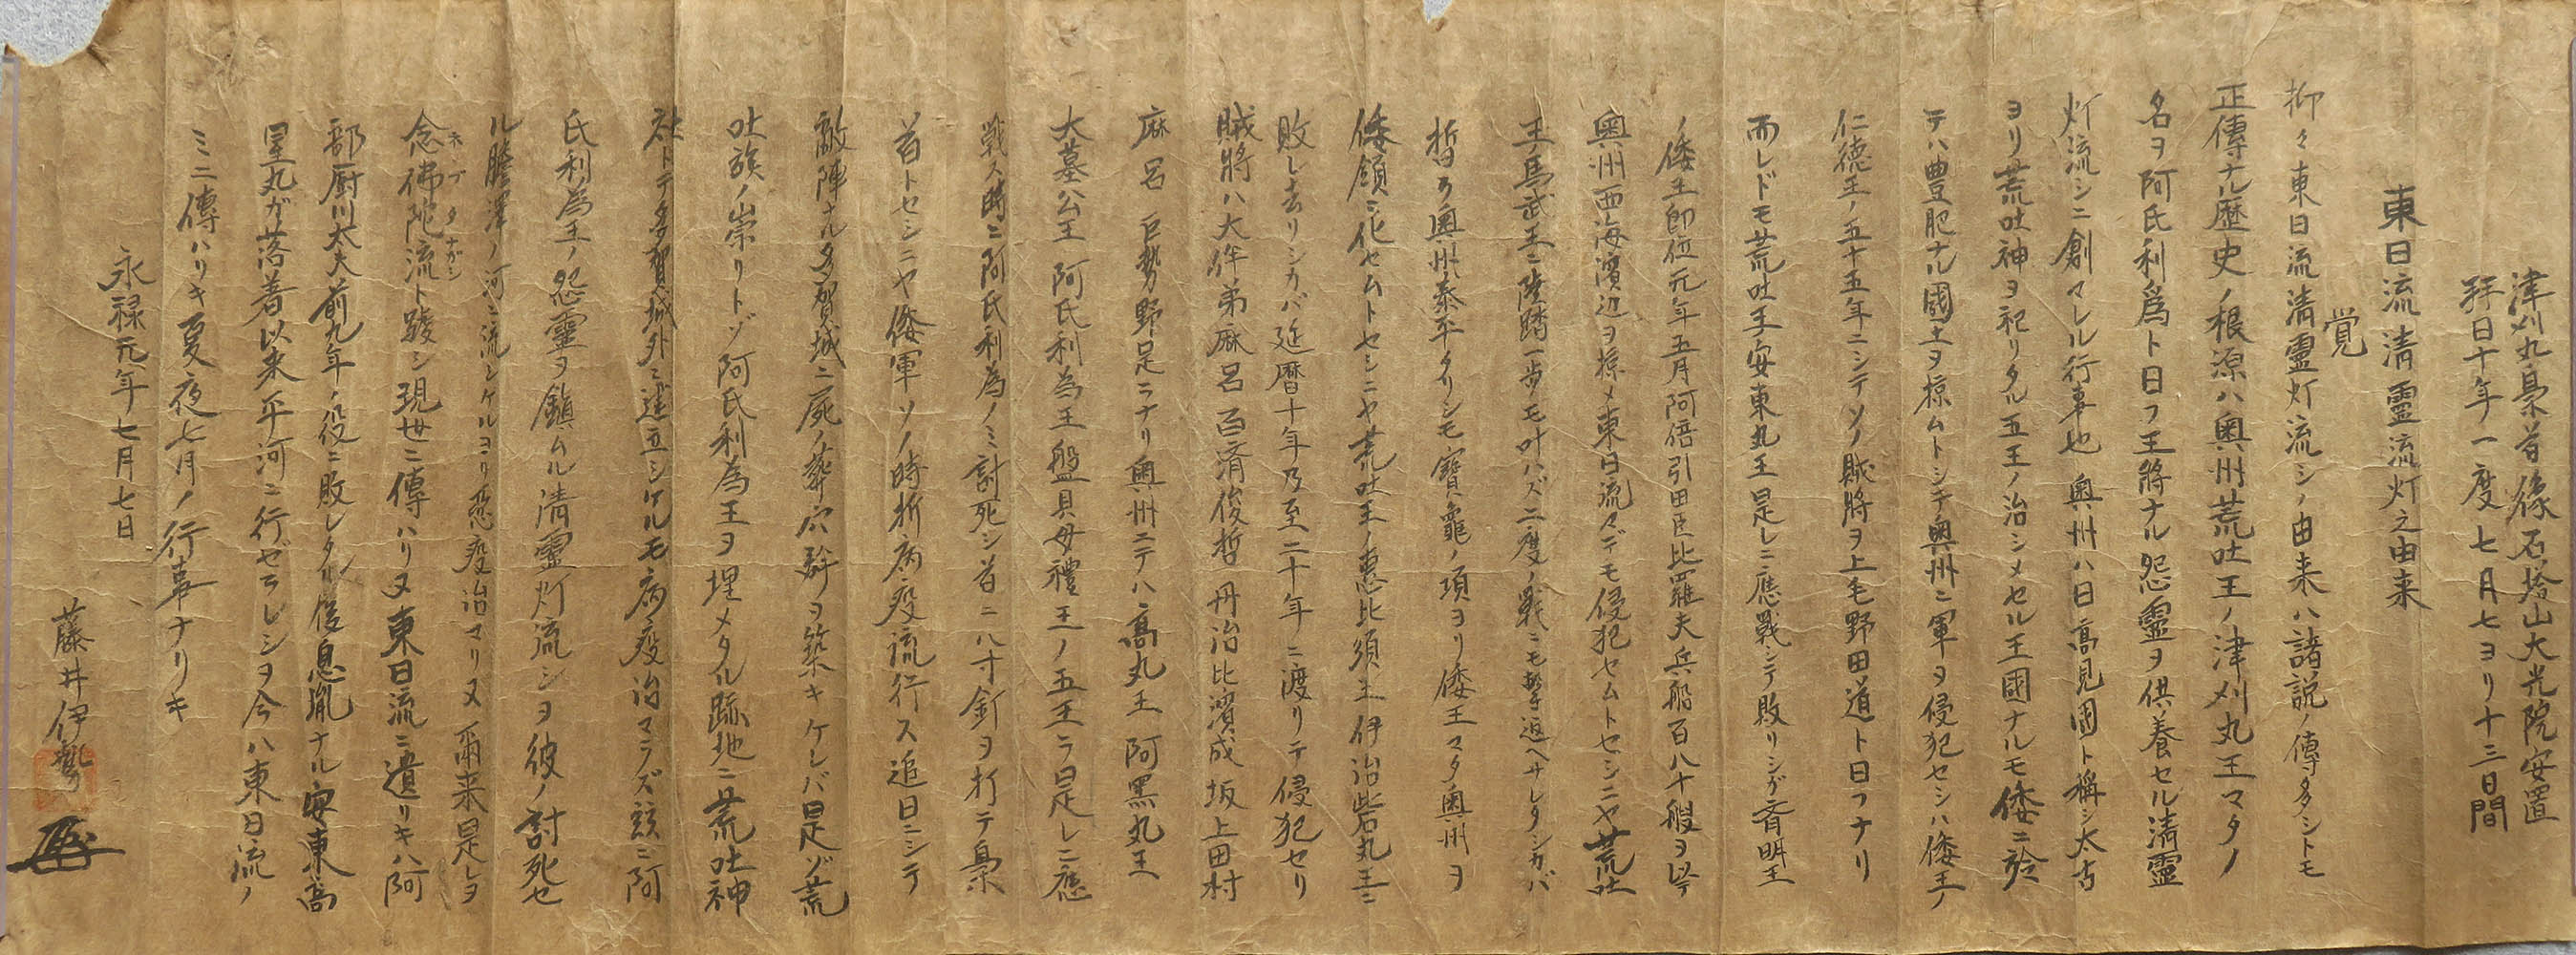 津刈丸梟首像石塔山大光院安置
拜日十年一度七月七ヨリ十三日間
東日流清霊流灯之由来
覚
抑々東日流清霊灯流シノ由来ハ諸説ノ傳多シトモ
正傳ナル歴史ノ根源ハ奥州荒吐王ノ津刈丸王マタノ
名ヲ阿氏利爲ト日フ王將ナル怨霊ヲ供養セル清霊
灯流シニ創マレル行事也 奥州ハ日高見国ト稱シ太古
ヨリ荒吐神ヲ祀リタル五王ノ治シメセル王國ナルモ倭ニ於
テハ豊肥ナル國土ヲ掠ムトシテ奥州ニ軍ヲ侵犯セシハ倭王ノ
仁徳王ノ五十五年ニシテソノ賊將ヲ上毛野田道ト日フナリ
而レドモ荒吐王安東丸王是レニ應戦シテ敗リシガ斉明王
ノ倭王即位元年五月阿倍引田臣比羅夫兵船百八十艘ヲ以テ
奥州西海濱辺ヲ掠メ東日流マデモ侵犯セムトセシニヤ荒吐
王ノ馬武王ニ陸踏一歩モ叶ハズ二度ノ戦ニモ撃返ヘサレタシカバ
暫ク奥州泰平タリシモ寶龜ノ項ヨリ倭王マタ奥州ヲ
倭領ニ化セムトセシニヤ荒吐王ノ恵比須王伊治砦丸王ニ
敗レ去リシカバ延暦十年乃至二十年ニ渡リテ侵犯セリ
賊將ハ大伴弟麻呂百済俊哲丹治比濱成坂上田村
麻呂 巨勢野足ニナリ奥州ニテハ高丸王 阿黒丸王
大墓公王 阿氏利為王盤具母禮王ノ五王ラ是レニ應
戦ス時ニ阿氏利為ノミ討死シ首ニ八寸釘ヲ打テ梟
首トセシニヤ倭軍ソノ時折病疫流行ス追日ニシテ
敵陣ナル多賀城ニ屍ノ葬穴群ヲ築キケレバ是ゾ荒
吐族ノ崇リトゾ阿氏利為王ヲ埋メタル跡地ニ荒吐神
社トテ多賀城外ニ建立シケルモ病疫治マラズ玆ニ阿
氏利為王ノ怨靈ヲ鎭ムル清靈灯流シヲ彼ノ討死セ
ル膽澤ノ河ニ流シケルヨリ悪疫治マリヌ 爾来是レヲ
念佛陀流ト䟽シ現世ニ傳ハリヌ東日流ニ遺リキハ阿
ネブタナガシ
部厨川太夫前九年ノ役ニ敗レタル後息胤ナル安東高
星丸ガ落着以来平河ニ行ゼラレシヲ今ハ東日流ノ
ミニ傳ハリキ夏夜七月ノ行事ナリキ
永禄元年七月七日
藤井伊勢